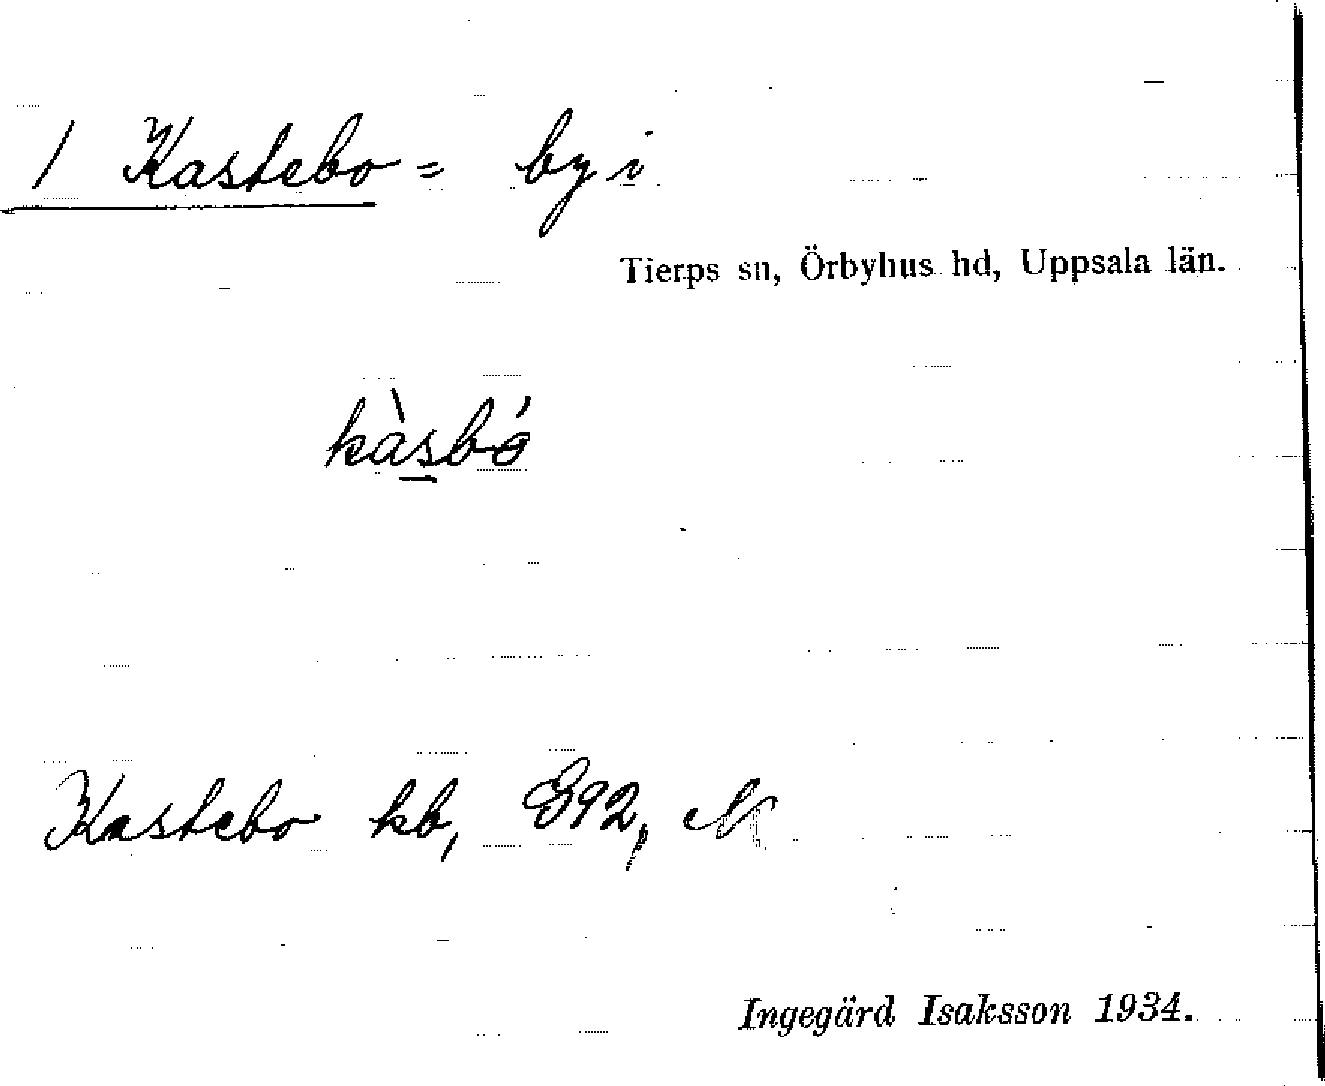 1 Kastebo = by i
Tierps sn, Örbyhus hd, Uppsala län.
kàsbó
Kastebo kb, G92, N
Ingegärd Isaksson 1934.